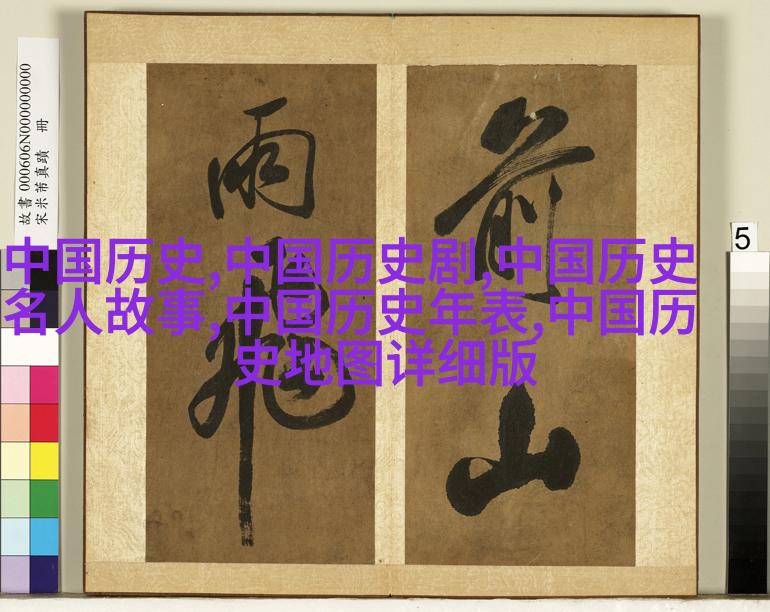 中国历史,中国历史剧,中国历史
名人故事,中国历史年表,中国历
史地图详细版
前山
雨
故書
宋米芾真蹟 冊
5